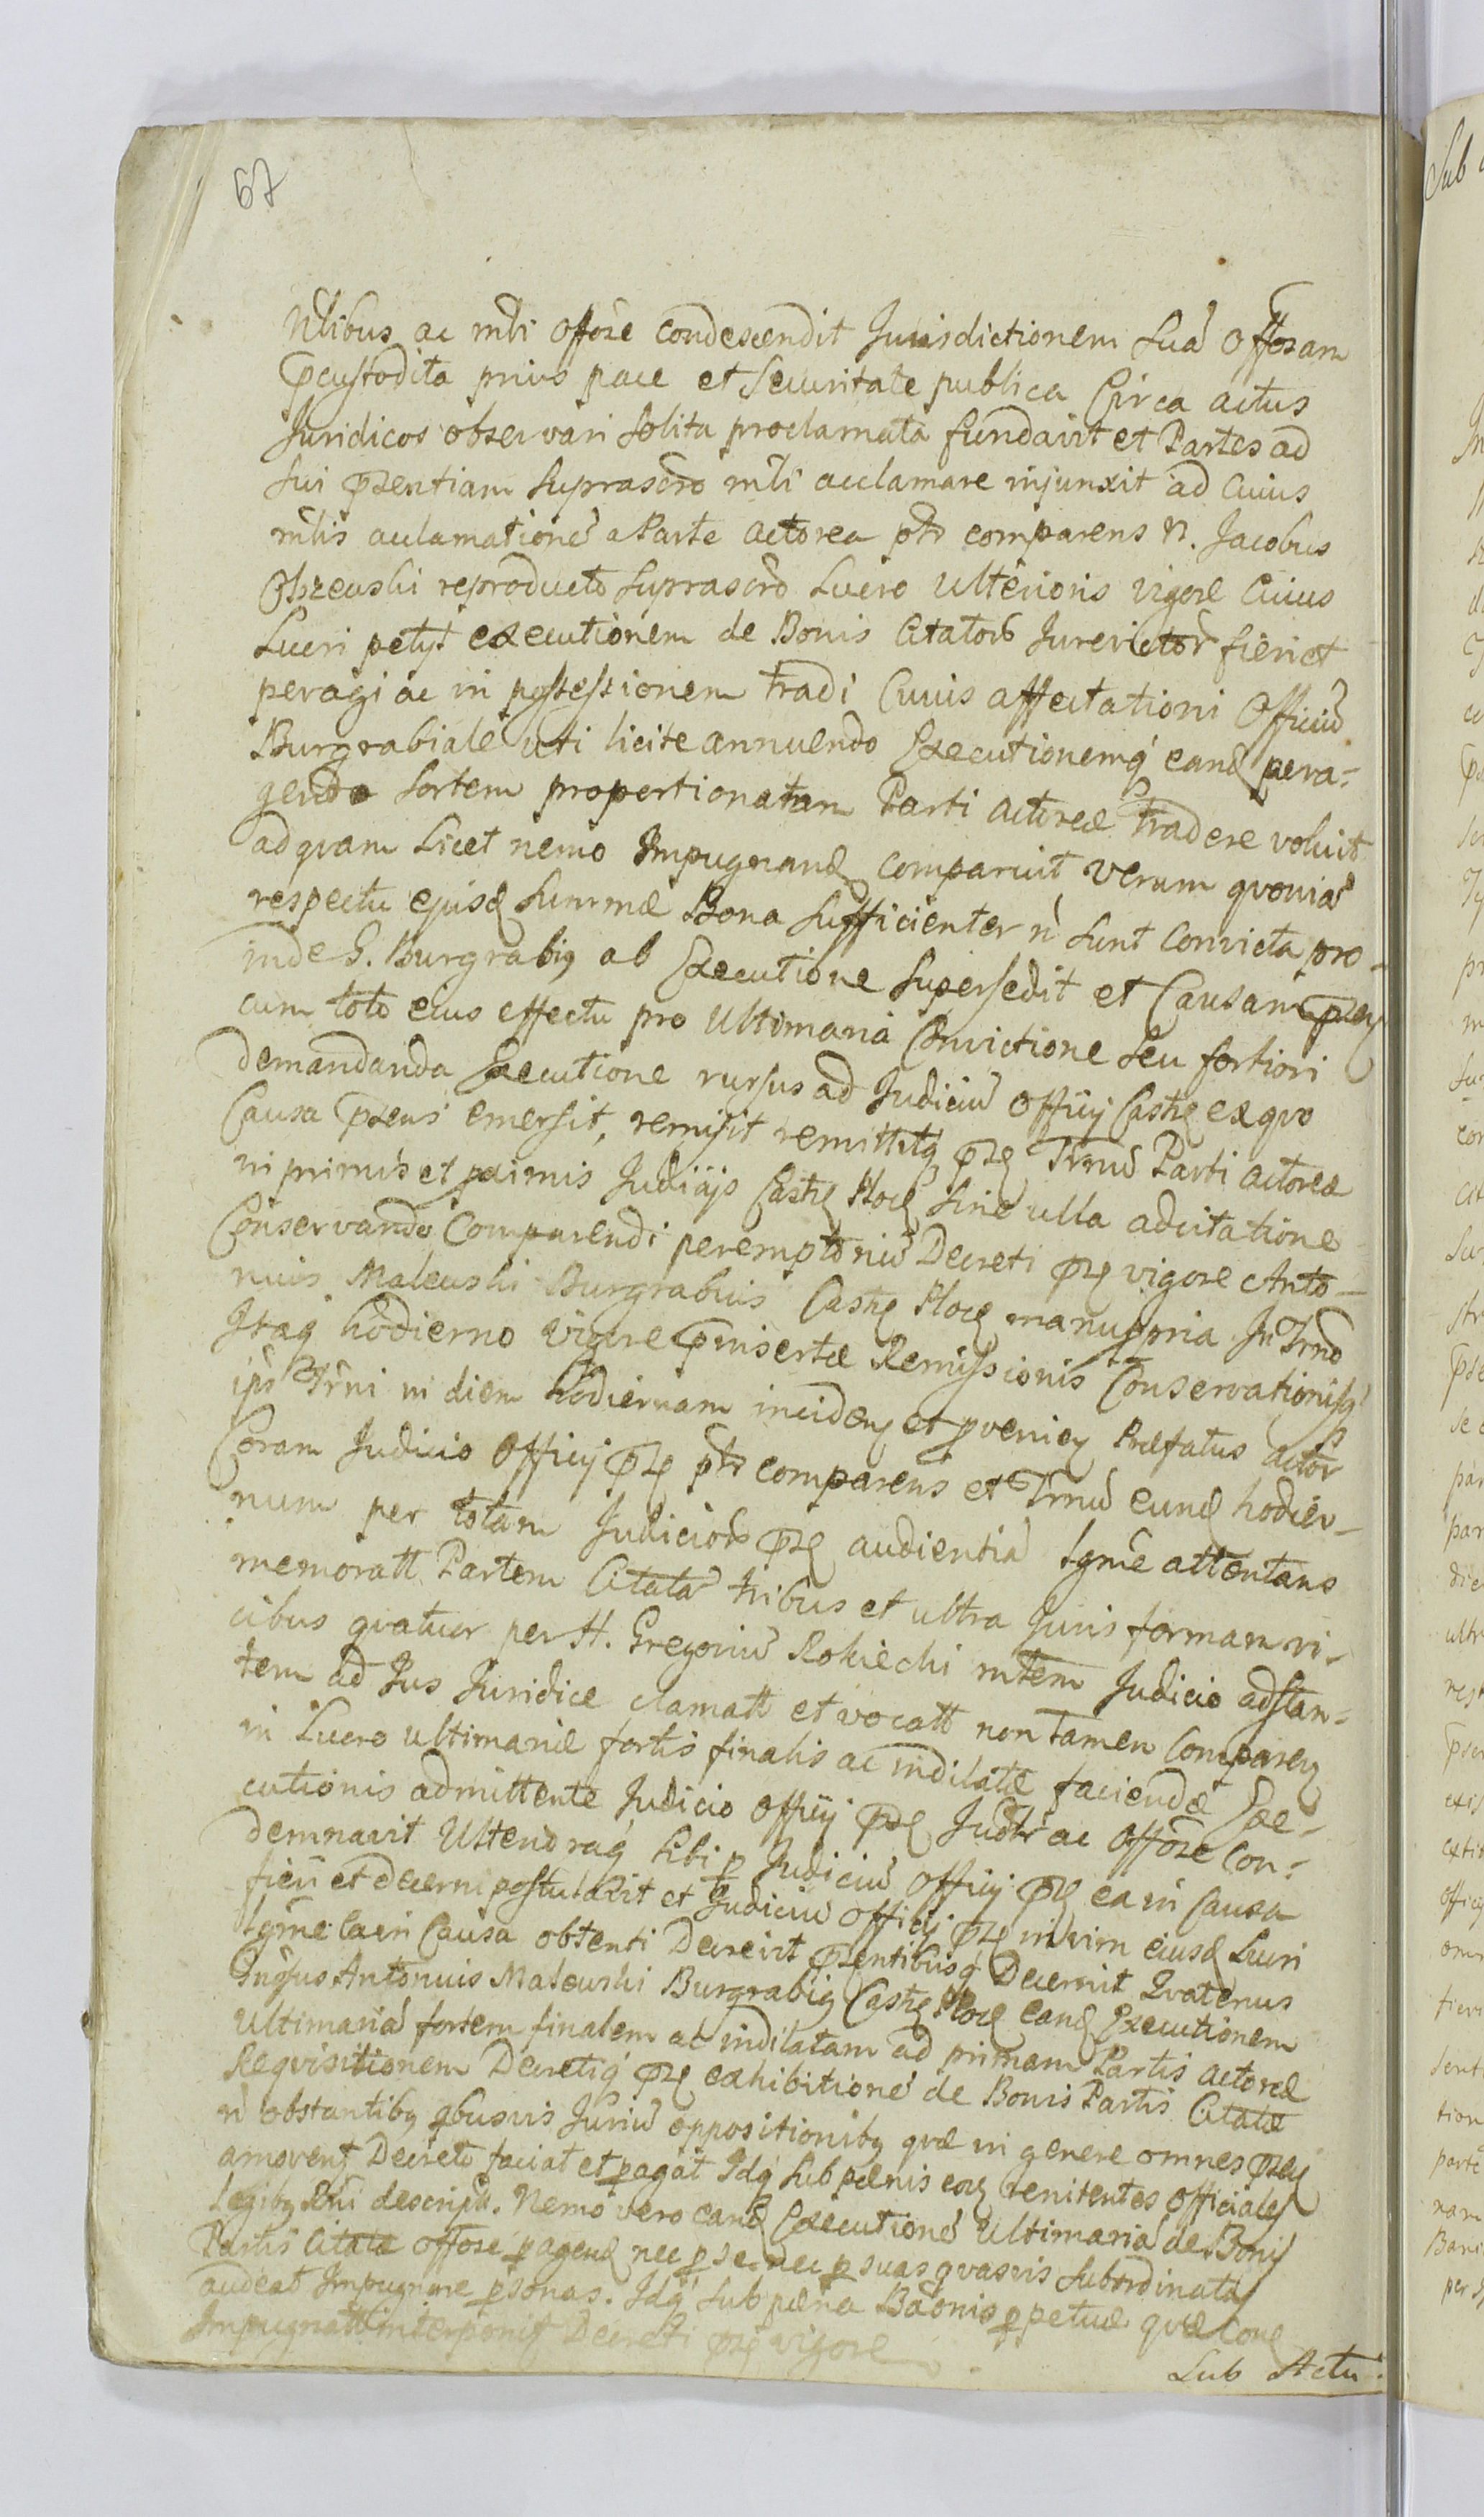 67
Nlibus ac mli offõse condescendit Jurisdictionem suã offosam
Pcustodita prius pace et securitate publica Circa actus
Juridicos observari solita proclamata fundavit et Partes ad
sui pzentiam suprascro mli acclamare injunxit ad Cuius
mlis acclamationẽ a Parte actorea ptr comparens N. Jacobus
Olszewski reproducto suprascro Lucro ulterioris vigore Cuius
Lucri petyt executionem de Bonis Citator Jurevictor fieri et
peragi ac in possessionem tradi Cuius affectationi Officiũ
Burgrabiale uti licite annuendo Executionemq eand pera=
gendo sortem proportionatam Parti actoreæ tradere voluit
ad quam Licet nemo Impugnand comparuit verum quoniã
respectu ejusd summæ Bona sufficienter ñ sunt convicta pro=
inde G. Burgrabig ab Executione supersedit et Causam pzen
cum toto eius effectu pro ultimaria Convictione seu fortiori
demandanda Executione rursus ad Judiciũ officij Castr ex quo
Causa pzens emersit, remisit remittitq pze Trmũ Parti actoreæ
in primis et primis Judicijs Castr Ploc sine ulla adcitatione
Conservando Comparendi peremptoriũ Decreti pze vigore Anto=
nius Malewski Burgrabius Castr Ploc manuppria. In Trno
Itaq hodierno vigore pinsertæ Remissionis Conservationisq
ips Trni in diem hodiernam inciden et pvenien Præfatus actor
Coram Judicio Officij pze ptr comparens et Trnũ eund hodier=
num per totam Judicior pze audientiã Lgme attentans
memoratt Partem Citatã tribus et ultra Juris formam vi=
cibus quatuor per H. Gregoriũ Rokicki mtem Judicio adstan=
tem ad Jus Juridice clamatt et vocatt non tamen Comparen
in Lucro ultimariæ fortis finalis ac indilatæ faciendæ Exe=
cutionis admittente Judicio officij pze Judtr ac offõse Con=
demnavit Ultendraq sibi p Judiciũ officij pze ea in Causa
fieri et decerni postulavit et Judiciũ officij pze in vim eiusd Lucri
Lgme ea in Causa obtenti Decrevit pzentibusq Decernit Quatenus
Gnsus Antonius Malewski Burgrabig Castr Ploc eand Executionem
Ultimariã fortem finalem ac indilatam ad primam Partis actoreæ
Requisitionem Decretiq pze exhibitionẽ de Bonis Partis Citatæ
ñ obstantibq qbusvis Juriũ oppositionibq quæ in genere omnes pzen
amovent Decreto faciat et pagat Idq sub pænis eor renitentes officiales
Legibq Rni descript. Nemo vero eand Executionẽ Ultimariã de Bonis
Partis Citatæ offose pagend nec p se nec p suas quasvis subordinatas
audeat Impugnare psonas. Idq sub pæna Bãonis ppetuæ quæ Con
Impugnatt interponit Decreti pze vigore
Sub Actu